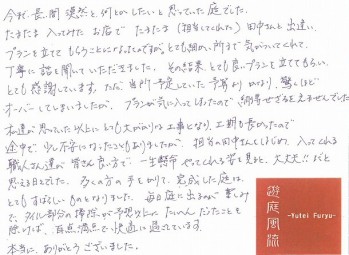 今まで、長い間 漠然と、何とかしたいと思っていた庭でした。
たまたま入ってみたお店で たまたま（担当してくれた）田中さんと出逢い、
プランを立ててもらうことになったのですが、とても細かい所まで気がついてくれて、
丁寧に話を聞いていただきました。その結果、とても良いプランを立ててもらい、
とても感謝しています。ただ当所予定していた予算よりかなり、驚くほど
オーバーしてしまいましたが、プランが気に入ってしまったので 納得せざるを えませんでした
私達が思っていた以上にとても大がかりな工事となり、工期も長かったので
途中で少し不安になったこともありましたが、担当の田中さんをはじめ 入ってくれる
職人さん達が 皆さん良い方で、一生懸命 やってくれる姿を見ると、大丈夫!! だと
思える日々でした。多くの方の手をかりて、完成した庭は、
とてもすばらしいものとなりました。毎日庭に出るのが楽しみ
で、タイル部分の掃除が予想以上に たいへんだったことを
除けば、百点満点で、快適に過ごしています。
本当に、ありがとうございました。
遊庭風流
-Yutei Furyu-